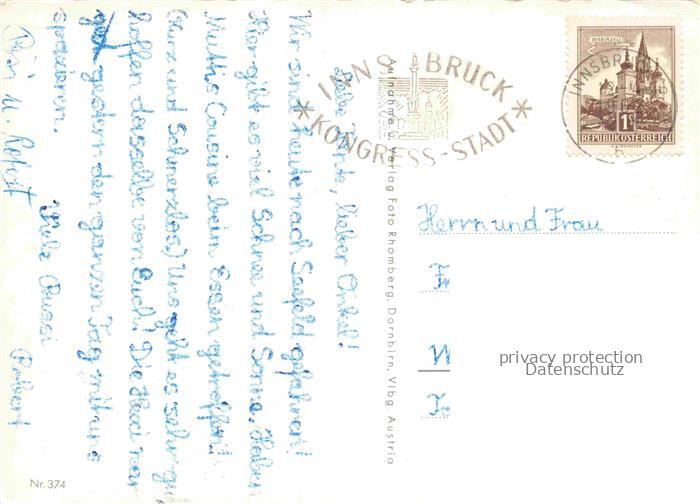 Liebe Tante, lieber Onkel!
Wir sind heute nach Seefeld gefahren!
Hier gibt es viel Schnee und Sonne. Haben
Muttis Cousine beim Essen getroffen!
(Kurz und Schmerzlos) Uns geht es sehr gut
hoffen dasselbe von Euch! Die Hexi war
gestern den ganzen Tag mit uns
spazieren.
Viele Bussi
Robert
u.
INNSBRUCK
KONGRESS-STADT
INNSBRUCK
MARIAZELL
1S
REPUBLIK ÖSTERREICH
Aufnahme u. Verlag Foto Rhomberg, Dornbirn, Vlbg. Austria
Herrn und Frau
privacy protection
Datenschutz
Nr. 374